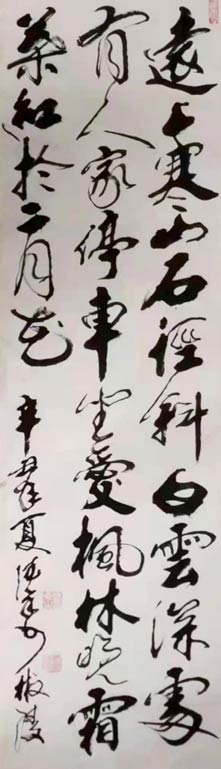 遠上寒山石徑斜白雲深處
有人家停車坐愛楓林晚霜
葉紅於二月花
辛丑年夏